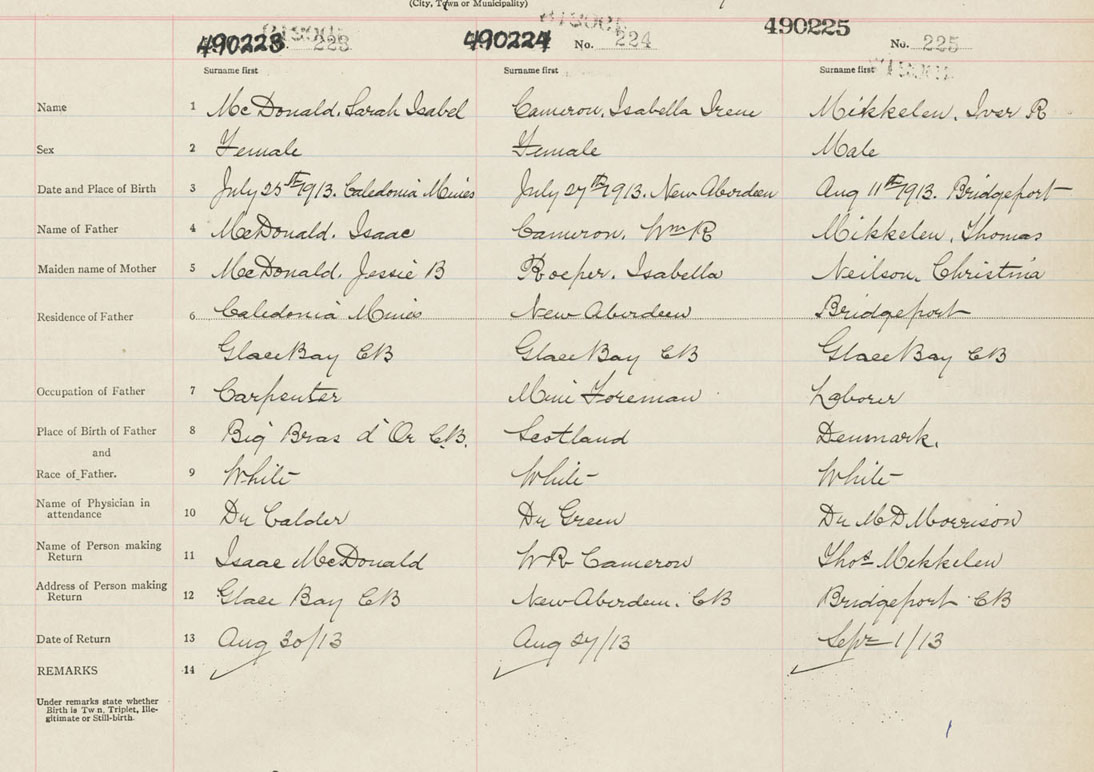 (City, Town or Municipality)
490223 223 490224 No. 224 490225 No. 225
Surname first Surname first Surname first
Name 1 McDonald, Sarah Isabel Cameron, Isabella Irene Mikkelen, Iver R
Sex 2 Female Female Male
Date and Place of Birth 3 July 25th 1913. Caledonia Mines July 27th 1913. New Aberdeen Aug 11th 1913. Bridgeport
Name of Father 4 McDonald. Isaac Cameron, Wm R Mikkelen, Thomas
Maiden name of Mother 5 McDonald. Jessie B Roeper. Isabella Neilson, Christina
Residence of Father 6 Caledonia Mines New Aberdeen Bridgeport
Glace Bay CB Glace Bay CB Glace Bay CB
Occupation of Father 7 Carpenter Mine Foreman Laborer
Place of Birth of Father 8 Big Bras d'Or C.B. Scotland Denmark.
and
Race of Father. 9 White White White
Name of Physician in
attendance 10 Dr Calder Dr Green Dr M D Morrison
Name of Person making
Return 11 Isaac McDonald W R Cameron Thos Mikkelen
Address of Person making
Return 12 Glace Bay CB New Aberdeen. CB Bridgeport CB
Date of Return 13 Aug /13 Aug 27/13 Sept 1/13
REMARKS 14
Under remarks state whether
Birth is Tw n, Triplet, Ille-
gitimate or Still-birth.